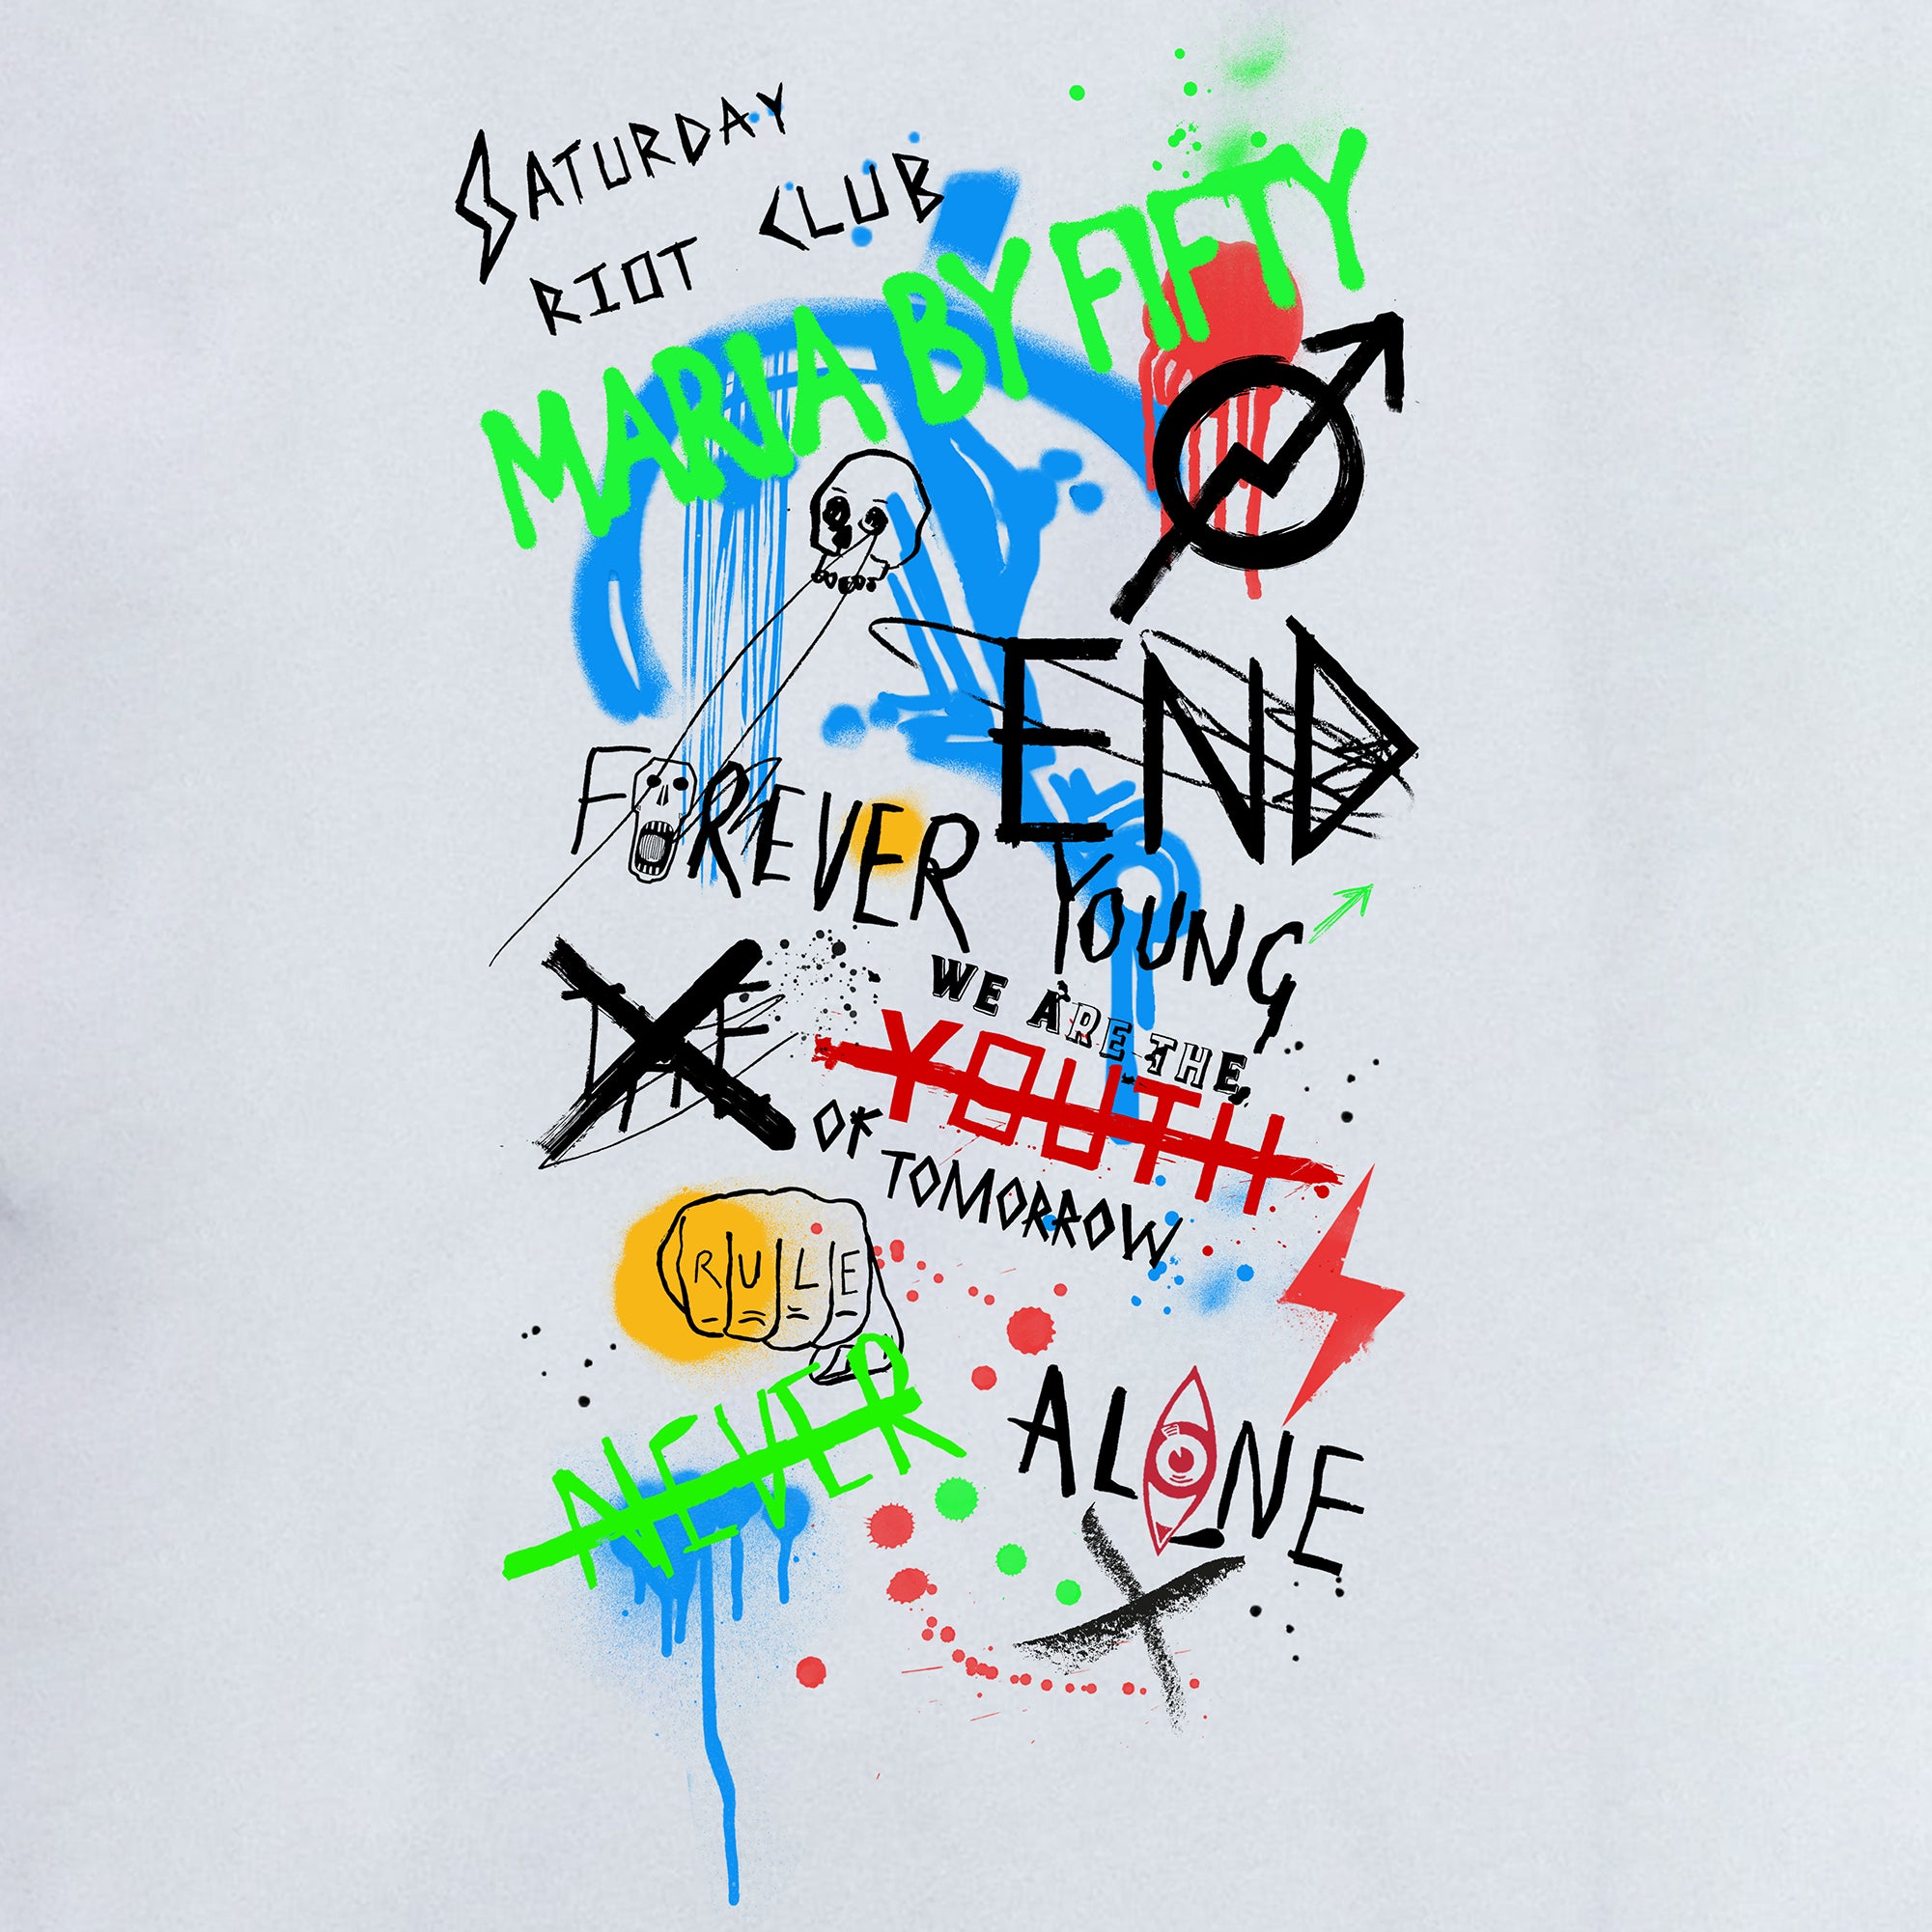 SATURDAY
RIOT CLUB
MARIA BY FIFTY
END
FOREVER YOUNG
WE ARE THE,
YOUTH
OF
TOMORROW
RULE
NEVER
ALONE